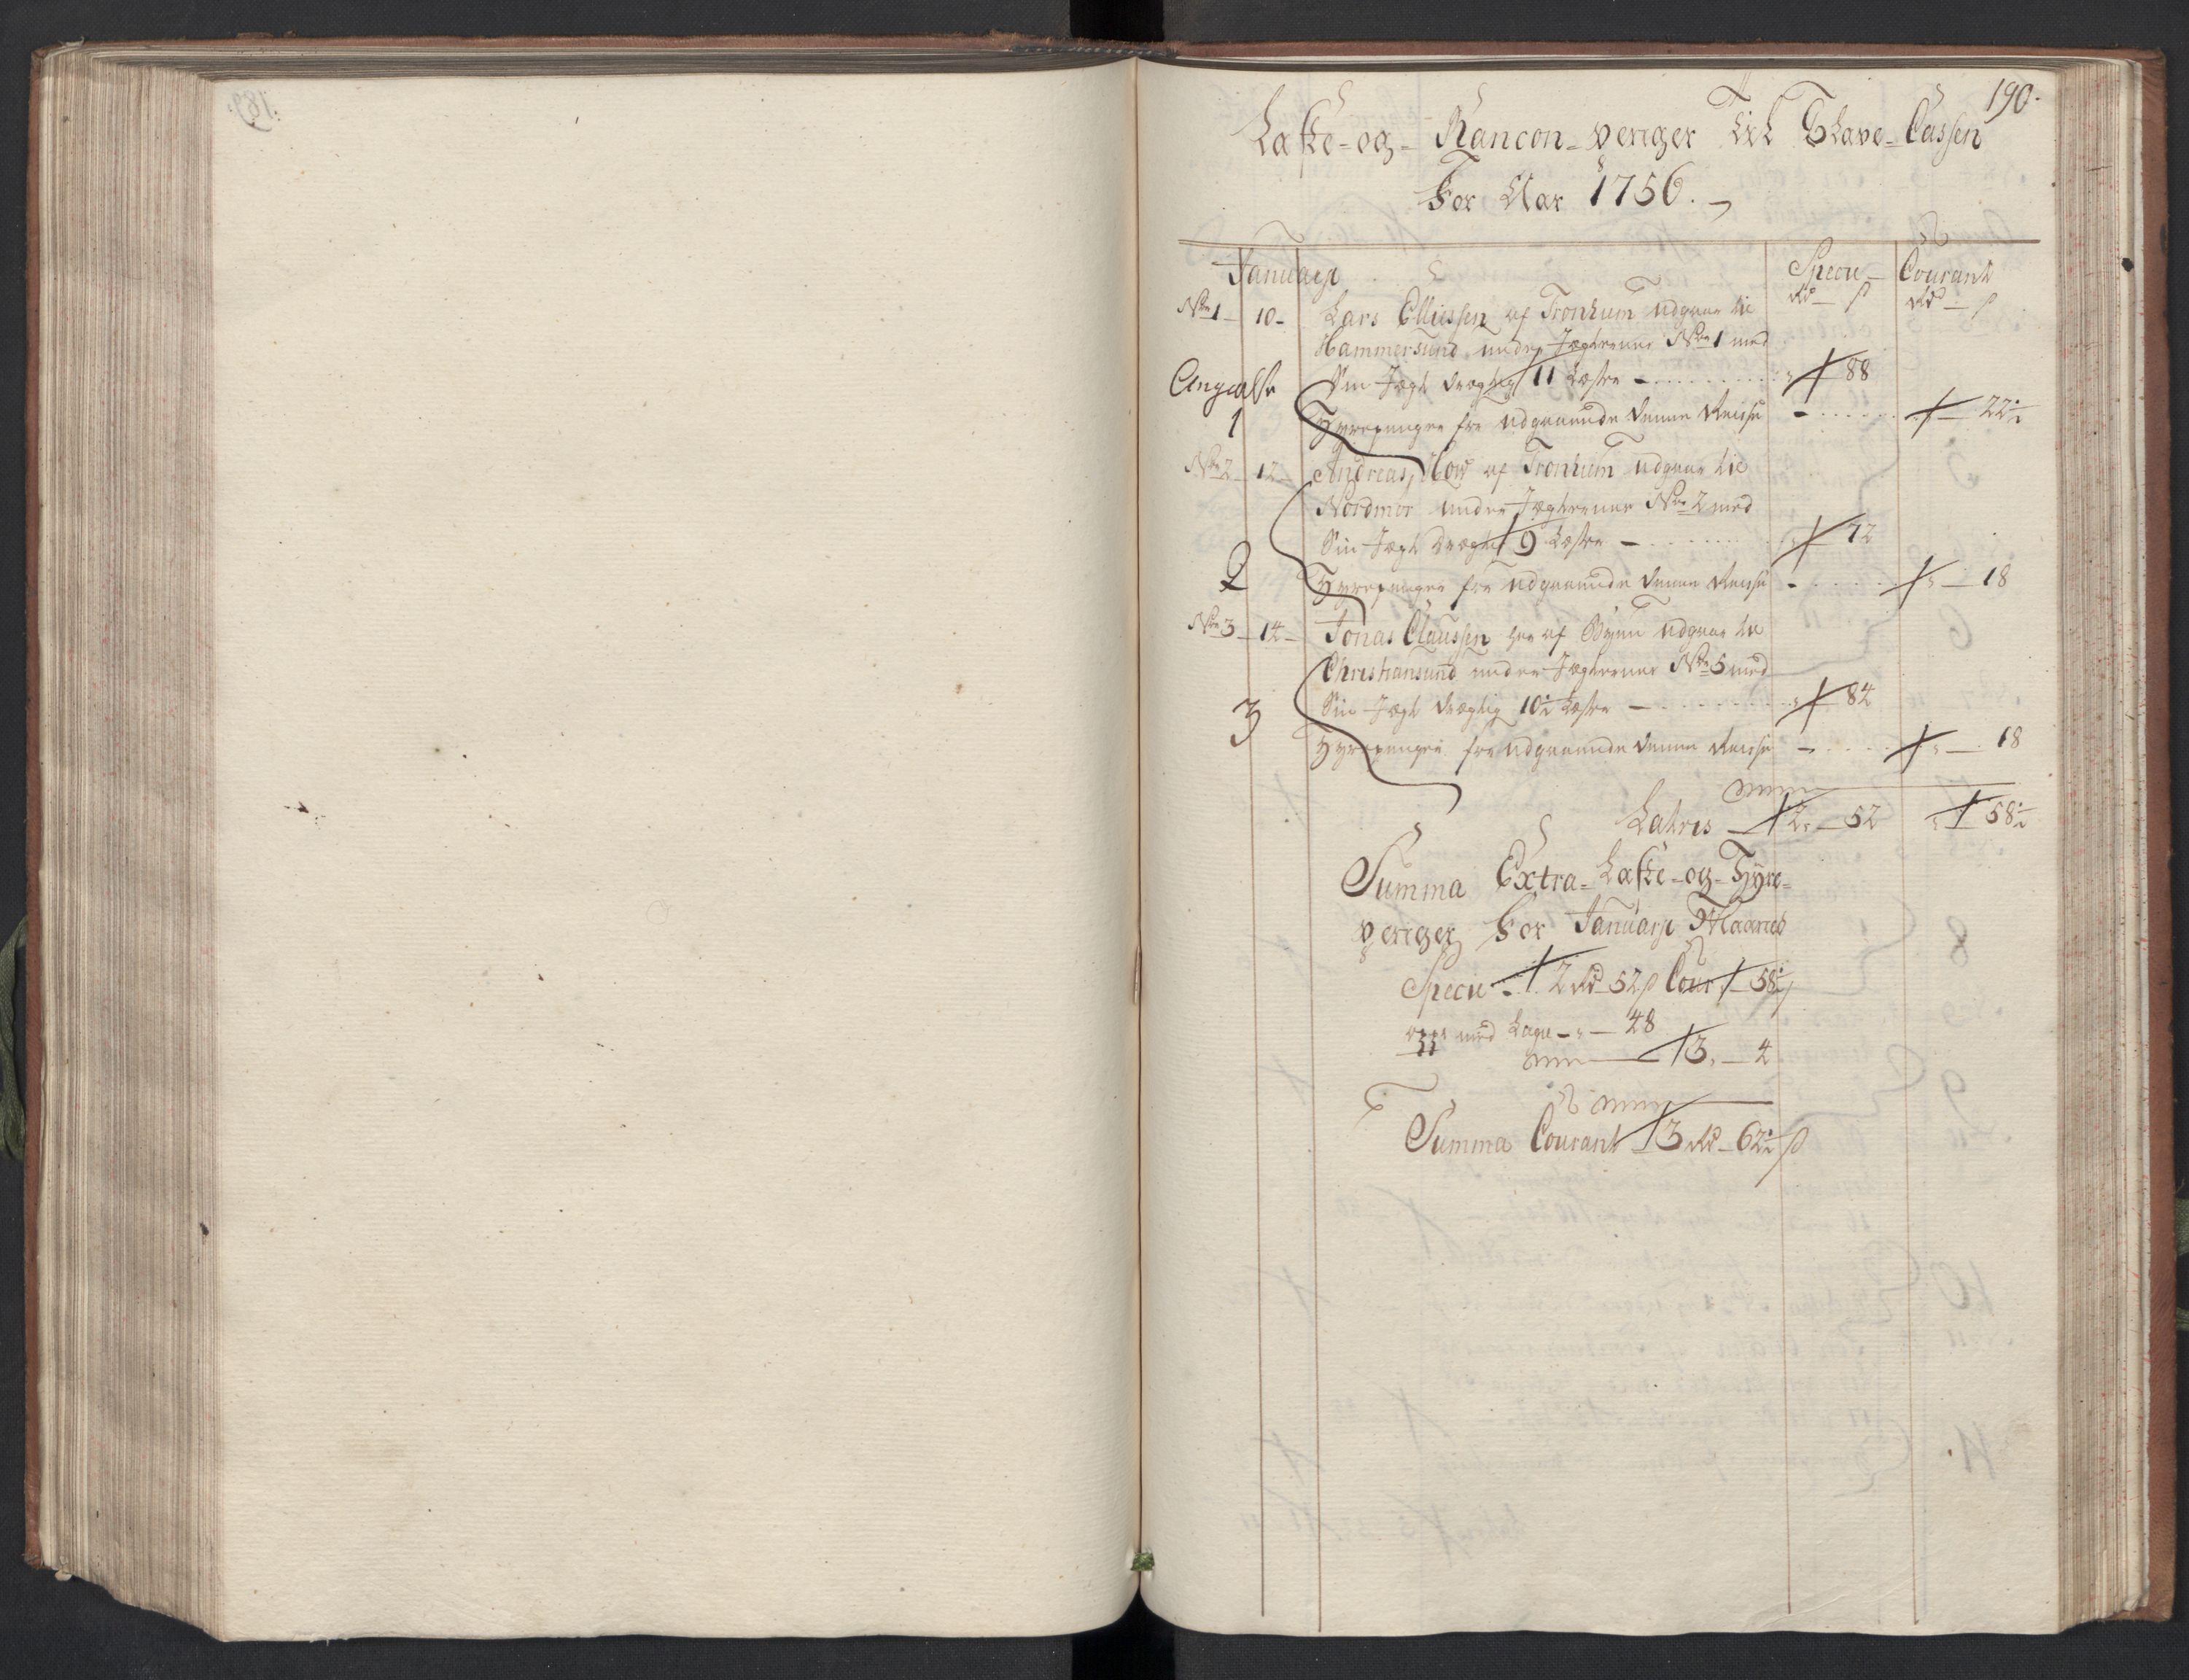 190.
Laste-og-Rancon-penger Til Slave-Cassen
For Aar 1756.
Januarii Specie Courant
Rd ß Rd ß
No 1 10 Lars Ellissen af Tronhiem Udgaar til
Hammersund under Jægternes No 1 med
Angivelse Sin Jægt drægtig 11 Læster 88
1 Hyrepenger for Udgaaende denne Reise 22½
No 2 12 Andreas How af Tronhiem Udgaar til
Nordmør under Jægternes No 2 med
Sin Jægt drægtig 9 Læster 72
2 Hyrepenger for Udgaaende denne Reise 18
No 3 14 Jonas Claussen her af Byen Udgaar til
Christiansund under Jægternes No 5 med
Sin Jægt drægtig 10½ Læster 84
3 Hyrepenger for Udgaaende denne Reise 18
Latris 2 52 58½
Summa Extra-Laste-og-Hyre-
penger for Januarii Maaned
Specie 2 Rd 52 ß Cour 58½ ß
med Lage 48
3 4
Summa Courant 3 Rd 62½ ß
189.